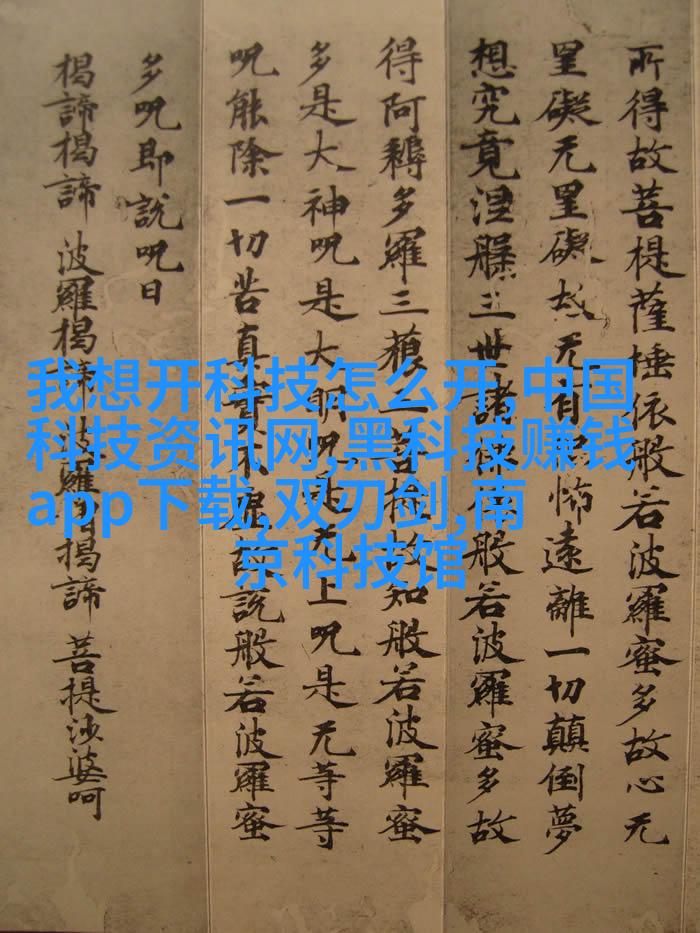 所得故菩提薩埵依般若波羅蜜多故心无
罣礙无罣礙故无有恐怖遠離一切顛倒夢
想究竟涅槃三世諸佛依般若波羅蜜多故
得阿耨多羅三藐三菩提故知般若波羅蜜
多是大神呪是大明呪是无上呪是无等等
呪能除一切苦真實不虛故說般若波羅蜜
多呪即說呪曰
揭諦揭諦 波羅揭諦 波羅僧揭諦 菩提沙婆呵
我想开科技怎么开,中国
科技资讯网,黑科技赚钱
app下载,双刃剑,南
京科技馆